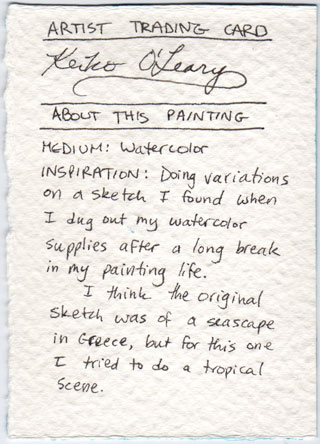 ARTIST TRADING CARD
Keiko O'Leary
ABOUT THIS PAINTING
MEDIUM: Watercolor
INSPIRATION: Doing variations
on a sketch I found when
I dug out my watercolor
supplies after a long break
in my painting life.
I think the original
sketch was of a seascape
in Greece, but for this one
I tried to do a tropical
scene.